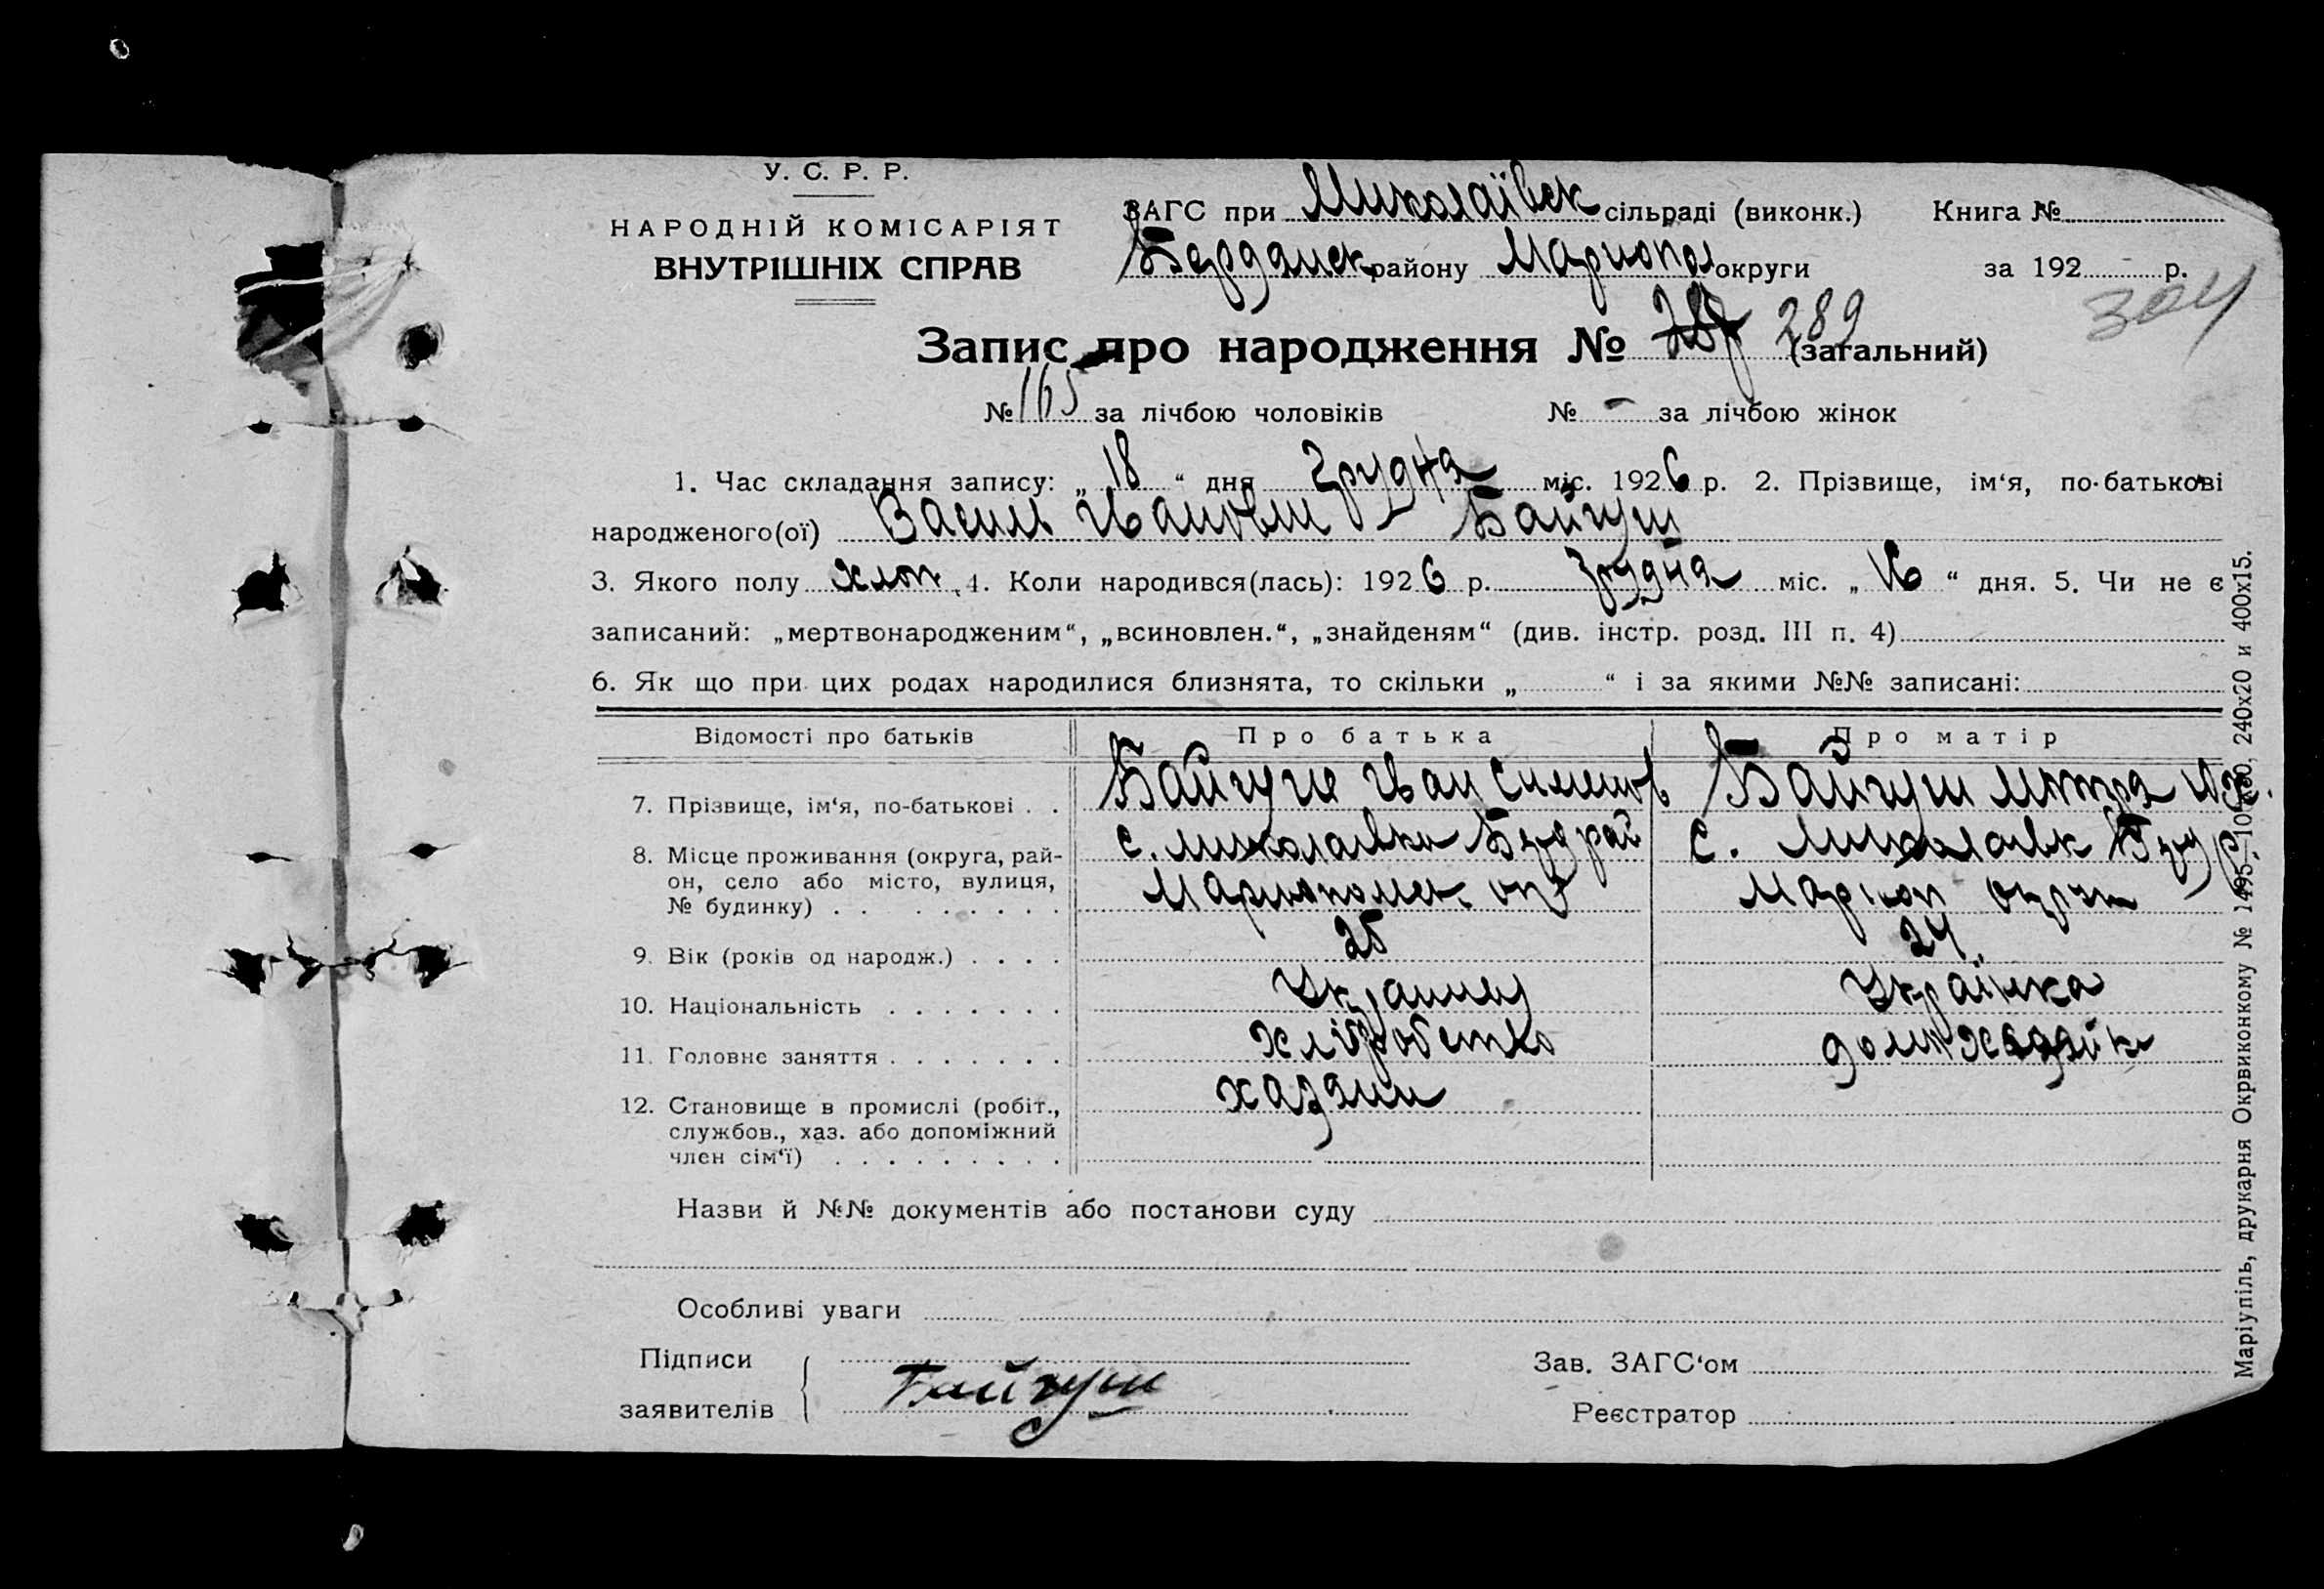 У. С. Р. Р.
НАРОДНІЙ КОМІСАРІЯТ
ВНУТРІШНІХ СПРАВ
ЗАГС при Миколаївск сільраді (виконк.) Книга №
Бердянск району Мариопол округи за 192 р.
304
Запис про народження № 289 (загальний)
№ 165 за лічбою чоловіків № - за лічбою жінок
1. Час складання запису: „ 18 “ дня Грудня міс. 1926 р. 2. Прізвище, ім‘я, по-батькові
народженого(ої) Василь Иванович Байгуш
3. Якого полу хлоп 4. Коли народився(лась): 1926 р. Грудня міс. „ 16 “ дня. 5. Чи не є
записаний: „мертвонародженим“, „всиновлен.“, „знайденям“ (див. інстр. розд. III п. 4)
6. Як що при цих родах народилися близнята, то скільки „ “ і за якими №№ записані:
Відомості про батьків Про батька Про матір
7. Прізвище, ім‘я, по-батькові . . Байгуш Иван Семенов Байгуш
8. Місце проживання (округа, рай-
он, село або місто, вулиця,
№ будинку) . . . . . . . . .
с. Миколаевка рай с. Миколаевк
Мариополск. окр Мариоп округи
9. Вік (років од народж.) . . . . 25 24
10. Національність . . . . . . . Украинец Українка
11. Головне заняття . . . . . . . хлібробство домохазяйк
12. Становище в промислі (робіт.,
службов., хаз. або допоміжний
член сім‘ї) . . . . . . . . .
хазяин
Назви й №№ документів або постанови суду
Особливі уваги
Підписи
заявителів
Байгуш
Зав. ЗАГС‘ом
Реєстратор
Маріупіль, друкарня Окрвиконкому № 1495 240х20 и 400х15.